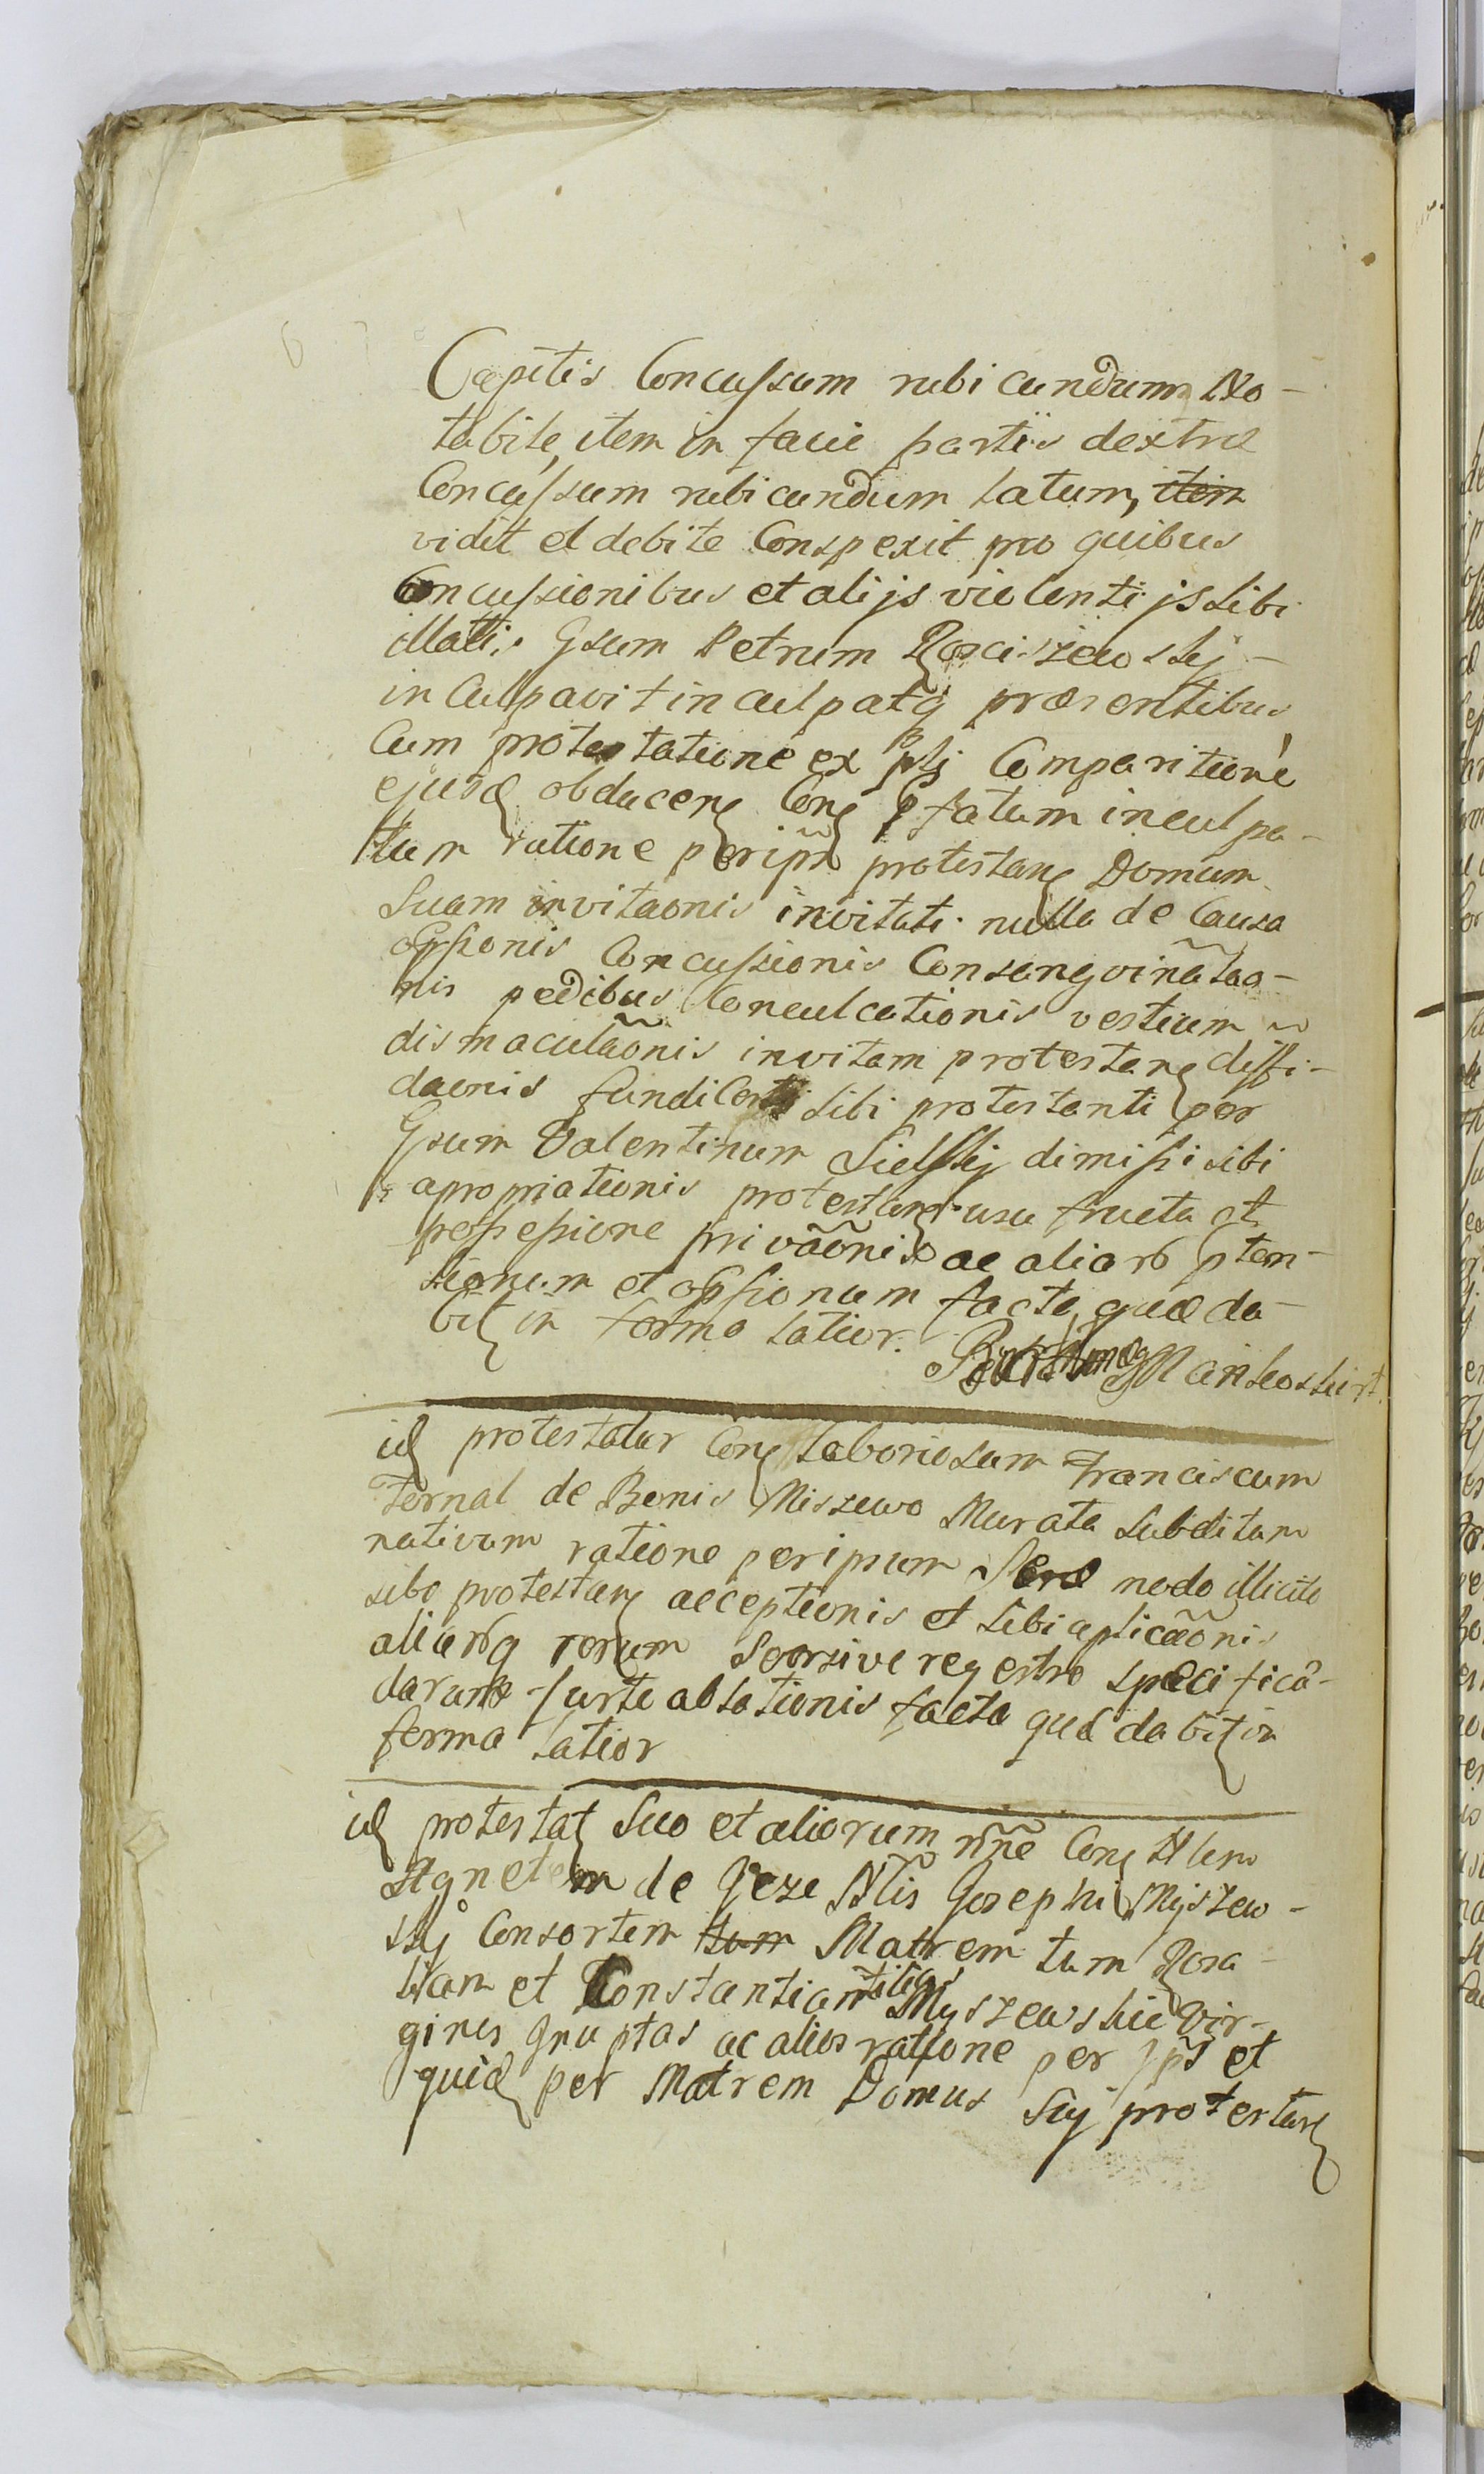 Capitis Concussum rubicundum No-
tabile, item in facie partis dextræ
Concussum rubicundum latum, item
vidit et debite Conspexit pro quibus
Concussionibus et alijs violentijs sibi
illatis Gsum Petrum Rosciszewskj -
inculpavit inculpatq præsentibus
Cum protestatione ex pti Comparitione
ejusd obducen Con pfatum inculpa-
tum ratione per ipm protestan Domum
Suam invitaonis invitati nulla de Causa
opssionis Concussionis Consangvinatao-
nis pedibus Conculcationis vestium
dismaculaonis in vitam protestan diffi-
daonis fundi sibi protestanti per
Gsum Valentinum Sielskj dimissi sibi
apropriationis protestan usu fructu et
possessione privaonis ac aliar pten-
sionum et opssionum facta, quæ da-
bit in forma latior.
id protestatur Con Laboriosum Franciscum
Fornal de Bonis Miszewo Murata subditum
nativum ratione per ipsum modo illicito
sibo protestan acceptionis et sibi aplicaonis
aliarq rerum Seorsive regestro specifica-
darum furto ablationis facta quæ dabit in
forma latior
id protestat Suo et aliorum nne Con Nlem
Agnetem de Jeze Nlis Josephi Myszew-
skj Consortem tum Matrem tum Rosa-
liam et Constantiam filias Myszewskie Vir-
gines Jnuptas ac alios ratione per Jps et
quid per Matrem Domus Suj protestan